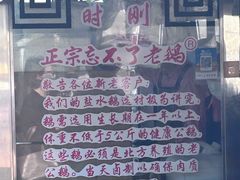 时刚
正宗忘不了老鹅®
敬告各位新老客户:
我们的盐水鹅选材极为讲究。
鹅需选用生长期在一年以上
体重不低于5公斤的健康公鹅。
这些鹅必须是北方养殖的老
公鹅。当天卤制以确保肉质